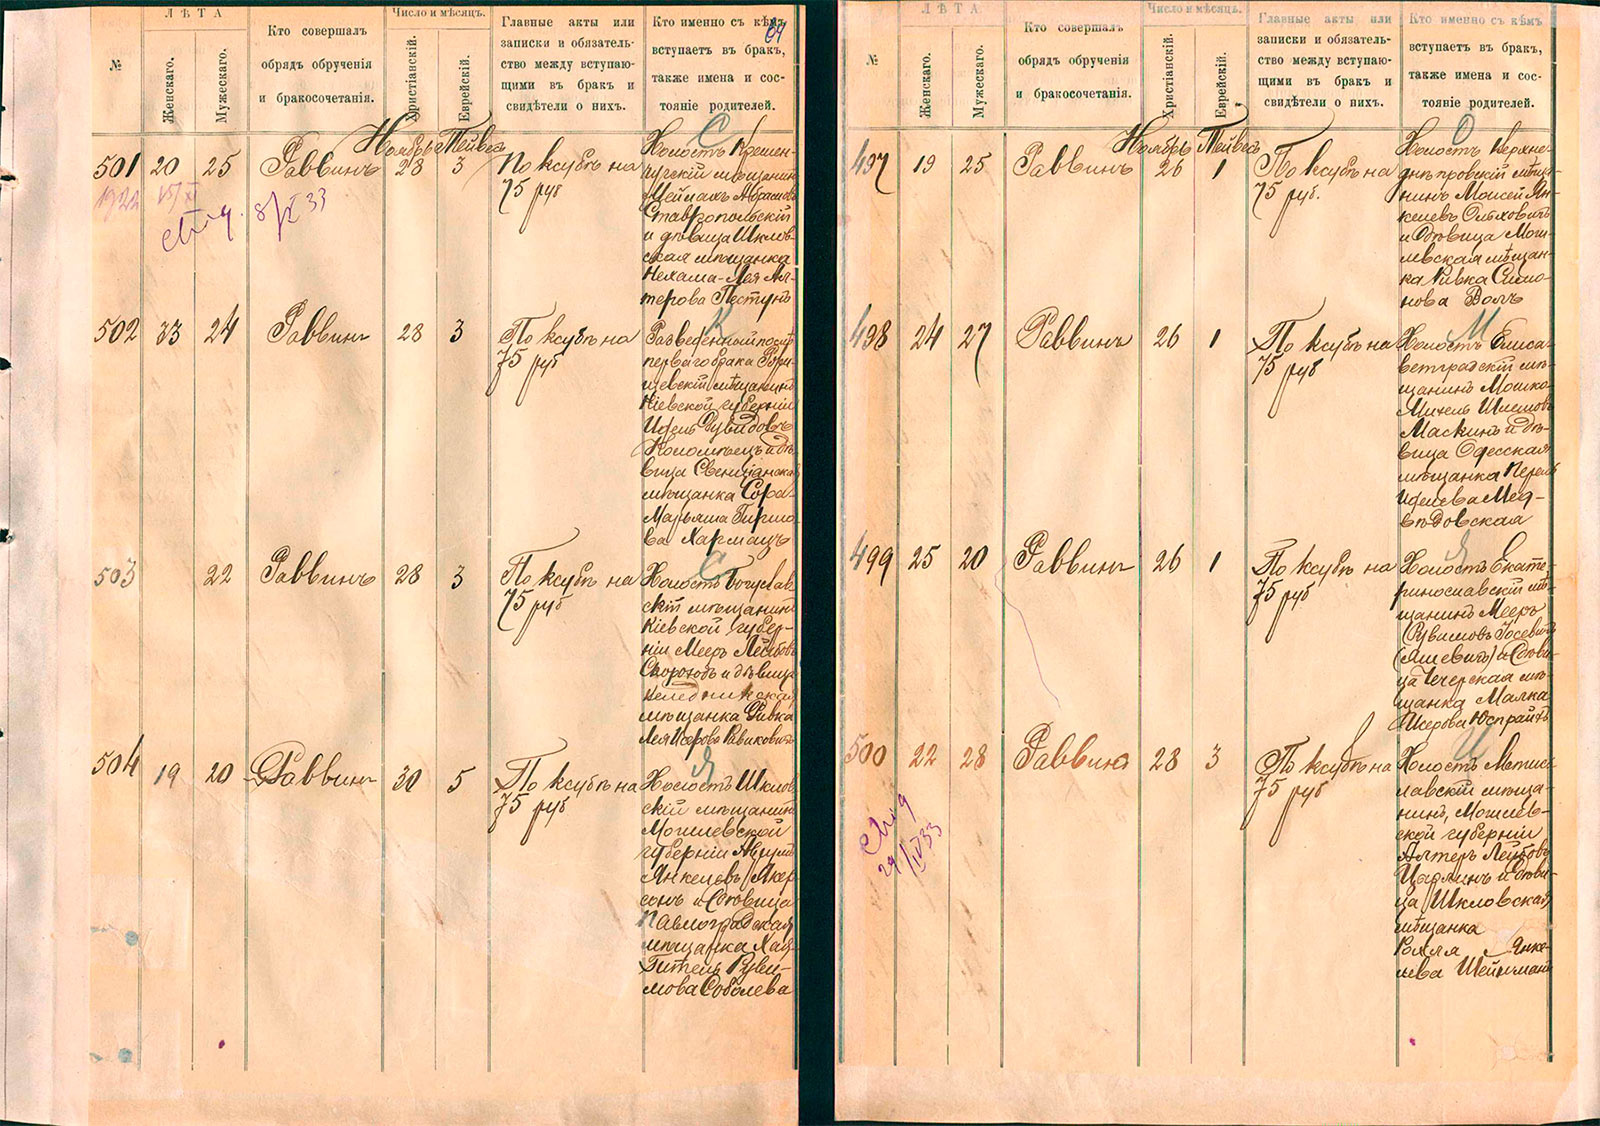 64
ЛѢТА
Число и мѣсяцъ.
№
Женскаго.
Мужескаго.
Кто совершалъ
обрядъ обрученія
и бракосочетанія.
Христіанскій.
Еврейскій.
Главные акты или
записки и обязатель-
ство между вступаю-
щими въ бракъ и
свидѣтели о нихъ.
Кто именно съ кѣмъ
вступаетъ въ бракъ,
также имена и сос-
тояніе родителей.
Ноябрь Тейвесъ
501 20 25 Раввинъ 28 3 По ксубѣ на
75 руб
С
Холостъ Кремен-
чугскій мѣщанинъ
Шейманъ Абрамовъ
Ставропольскій
и дѣвица Шклов-
ская мѣщанка
Нехама-Лея Ал-
терова Пестунъ
8/X 33
502 33 24 Раввинъ 28 3 По ксубѣ на
75 руб
К
Разведенный послѣ
перваго брака Ржи-
щевскій мѣщанинъ
Кіевской губерніи
Идель Дувидовъ
Коломѣецъ и дѣ-
вица Свенцянская
мѣщанка Сора-
Марьяша Гиршо-
ва Хармацъ
503 22 Раввинъ 28 3 По ксубѣ на
75 руб
С
Холостъ Богуслав-
скій мѣщанинъ
Кіевской губер-
ніи Мееръ Лейбовъ
Скороходъ и дѣвица
мѣщанка Ривка
Лея Исерова Равиковичъ
504 19 20 Раввинъ 30 5 По ксубѣ на
75 руб
Я
Холостъ Шклов-
скій мѣщанинъ
Могилевской
губерніи Аврумъ
Янкелевъ Якер-
сонъ и дѣвица
Павлоградская
мѣщанка Хая-
Гитель Руви-
мова Соболева
ЛѢТА
Число и мѣсяцъ.
№
Женскаго.
Мужескаго.
Кто совершалъ
обрядъ обрученія
и бракосочетанія.
Христіанскій.
Еврейскій.
Главные акты или
записки и обязатель-
ство между вступаю-
щими въ бракъ и
свидѣтели о нихъ.
Кто именно съ кѣмъ
вступаетъ въ бракъ,
также имена и сос-
тояніе родителей.
Ноябрь Тейвесъ
497 19 25 Раввинъ 26 1 По ксубѣ на
75 руб.
О
Холостъ Верхне-
днѣпровскій мѣща-
нинъ Моисей Ян-
келевъ Ольховичъ
и дѣвица Моги-
левская мѣщан-
ка Ривка Симо-
нова Волъ
498 24 27 Раввинъ 26 1 По ксубѣ на
75 руб
М
Холостъ Елиса-
ветградскій мѣ-
щанинъ Мошко-
Михель Шлемовъ
Маскинъ и дѣ-
вица Одесская
мѣщанка Перель
Иделева Мед-
вѣдовская
499 25 20 Раввинъ 26 1 По ксубѣ на
75 руб
Я
Холостъ Екате-
ринославскій мѣ-
щанинъ Мееръ
Рувимовъ Іосевичъ
(Яшевичъ) и дѣви-
ца Чечерская мѣ-
щанка Малка
Шкерова Юспрайхъ
500 22 28 Раввинъ 28 3 По ксубѣ на
75 руб
Ц
Холостъ Мстис-
лавскій мѣща-
нинъ, Могилев-
ской губерніи
Алтеръ Лейбовъ
Царлинъ и дѣви-
ца Шкловская
мѣщанка
Рохля Янке-
лева Шейнманъ
29/IV 33